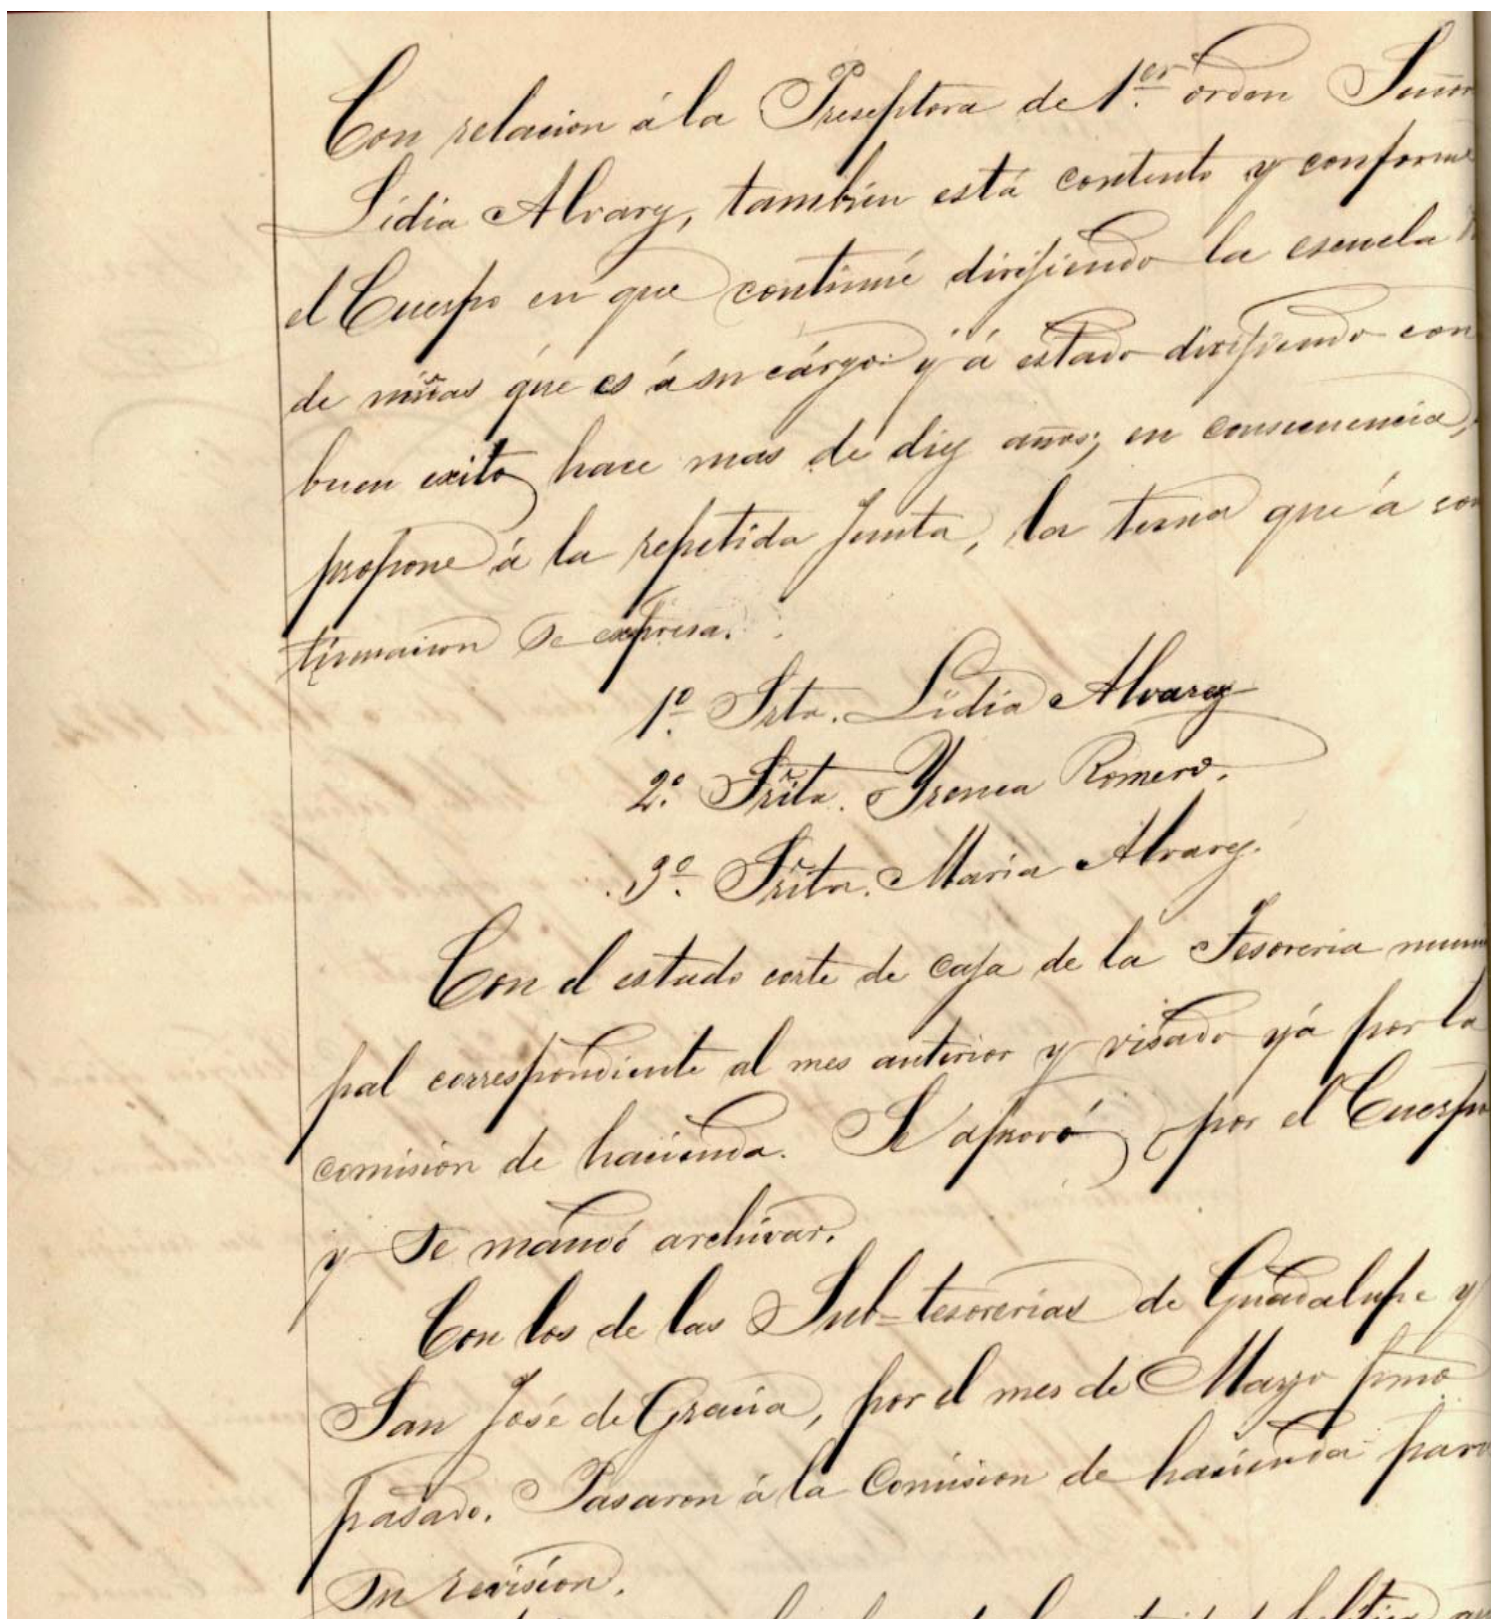 Con relacion á la Preseptora de 1.er orden Señor
Lidia Alvarez, tambien está contento y conforme
el Cuerpo en que continúe dirijiendo la escuela
de niñas que es á su cárgo y á estado dirijiendo con
buen exito hace mas de diez años; en consecuencia,
propone á la repetida Junta, la terna que á con
tinuacion se expresa.
1º. Srta. Lidia Alvarez
2º. Sñita. Yrenea Romero.
3º. Sñita. Maria Alvarez.
Con el estado corte de caja de la Tesoreria muni
pal correspondiente al mes anterior y visado yá por la
comision de hacienda. Se aprovó por el Cuerpo
y se mandó archivar.
Con los de las Sub-tesorerias de Guadalupe y
San José de Gracia, por el mes de Mayo pmo.
pasado. Pasaron á la Comision de hacienda para
su revision.